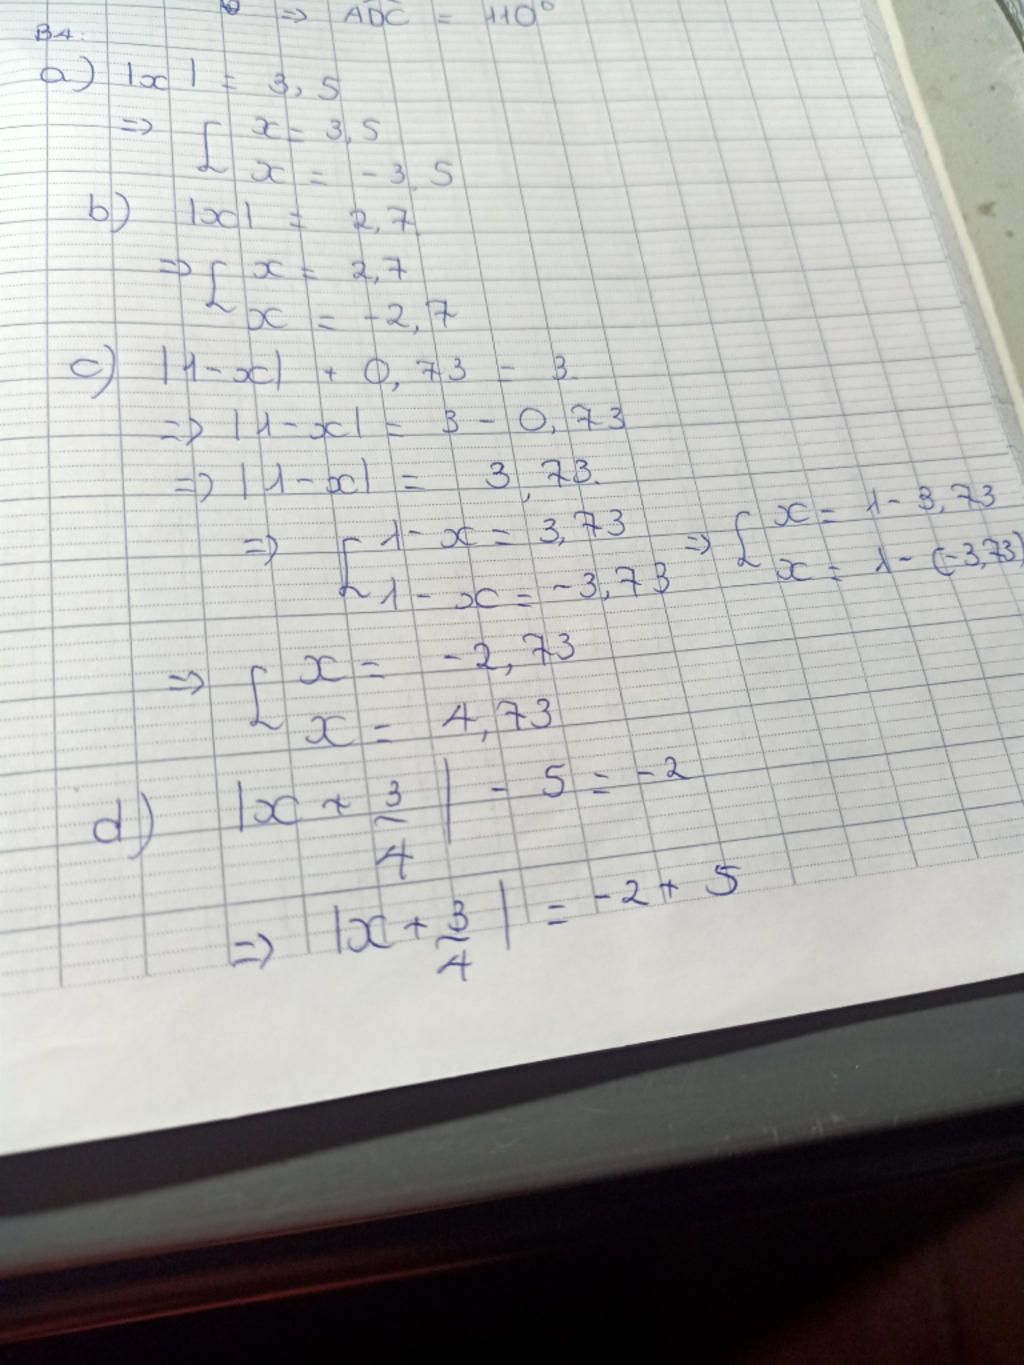 ⇒ ADC = 110°
B4:
a) |x| = 3,5
⇒ [ x = 3,5
x = -3,5
b) |x| = 2,7
⇒ [ x = 2,7
x = -2,7
c) |1-x| + 0,73 = 3
⇒ |1-x| = 3 - 0,73
⇒ |1-x| = 3,73
⇒ [ 1-x = 3,73 ⇒ [ x = 1-3,73
1-x = -3,73 x = 1-(-3,73)
⇒ [ x = -2,73
x = 4,73
d) |x + 3/4| - 5 = -2
⇒ |x + 3/4| = -2 + 5